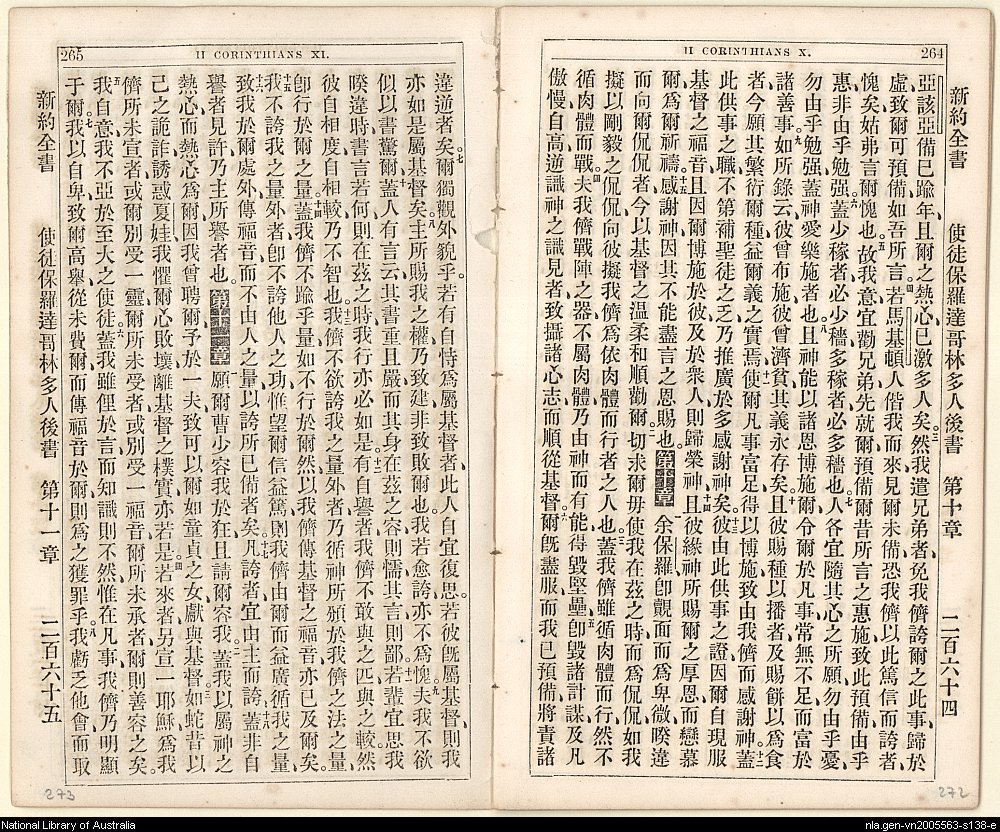 264
II CORINTHIANS X.
新約全書 使徒保羅達哥林多人後書 第十章 二百六十四
亞該亞備已踰年且爾之熱心已激多人矣。三然我遣兄弟者免我儕誇爾之此事歸於
虛致爾可預備如吾所言。四若馬基頓人偕我而來見爾未備恐我儕以此篤信而誇者
愧矣姑弗言爾愧也。五故我意宜勸兄弟先就爾預備爾昔所言之惠施致此預備由乎
惠非由乎勉强。六蓋少稼者必少穡多稼者必多穡也。七人各宜隨其心之所願勿由乎憂
勿由乎勉强蓋神愛樂施者也。八且神能以諸恩博施爾令爾於凡事常無不足而富於
諸善事。九如所錄云彼曾布施彼曾濟貧其義永存矣。十且彼賜種以播者及賜餅以爲食
者今願其繁衍爾種益爾義之實焉。十一使爾凡事富足得以博施致由我儕而感謝神。十二蓋
此供事之職不第補聖徒之乏乃推廣於多感謝神矣。十三彼由此供事之證因爾自現服
基督之福音且因爾博施於彼及於衆人則歸榮神。十四且彼緣神所賜爾之厚恩而戀慕
爾爲爾祈禱。十五感謝神因其不能盡言之恩賜也。第十章 一余保羅卽覿面而爲卑微暌違
而向爾侃侃者今以基督之温柔和順勸爾。二切求爾毋使我在茲之時而爲侃侃如我
擬以剛毅之侃侃向彼擬我儕爲依肉體而行者之人也。三蓋我儕雖循肉體而行然不
循肉體而戰。四夫我儕戰陣之器不屬肉體乃由神而有能得毀堅壘。五卽毀諸計謀及凡
傲慢自高逆識神之識見者致攝諸心志而順從基督。六爾旣盡服而我已預備將責諸
272
265
II CORINTHIANS XI.
違逆者矣。七爾獨觀外貌乎若有自恃爲屬基督者此人自宜復思若彼旣屬基督則我
亦如是屬基督矣。八主所賜我之權乃致建非致敗爾也我若愈誇亦不爲愧。九夫我不欲
似以書驚爾。十蓋人有言云其書重且嚴而其身在茲之容則懦其言則鄙。十一若輩宜思我
暌違時書言若何則在茲之時我行亦必如是。十二有自譽者我儕不敢與之匹與之較然
彼自相度自相較乃不智也。十三我儕不欲誇我之量外者乃循神所頒於我儕之法之量
卽行於爾之量。十四蓋我儕不踰乎量如不行於爾然以我儕傳基督之福音亦已及爾矣。
十五我不誇我之量外者卽不誇他人之功惟望爾信益篤則我儕由爾而益廣循我之量
十六致我於爾處外傳福音而不由人之量以誇所已備者矣。十七凡誇者宜由主而誇。十八蓋非自
譽者見許乃主所譽者也。第十一章 一願爾曹少容我於狂且請爾容我。二蓋我以屬神之
熱心而熱心爲爾因我曾聘爾予於一夫致可以爾如童貞之女獻與基督。三如蛇昔以
己之詭詐誘惑夏娃我懼爾心敗壞離基督之樸實亦若是。四若來者另宣一耶穌爲我
儕所未宣者或爾別受一靈爾所未受者或別受一福音爾所未承者爾則善容之矣。
五我自意我不亞於至大之使徒。六蓋我雖俚於言而知識則不然惟在凡事我儕乃明顯
于爾。七我以自卑致爾高舉從未費爾而傳福音於爾則爲之獲罪乎。八我虧乏他會而取
新約全書 使徒保羅達哥林多人後書 第十一章 二百六十五
273
National Library of Australia
nla.gen-vn2005563-s138-e